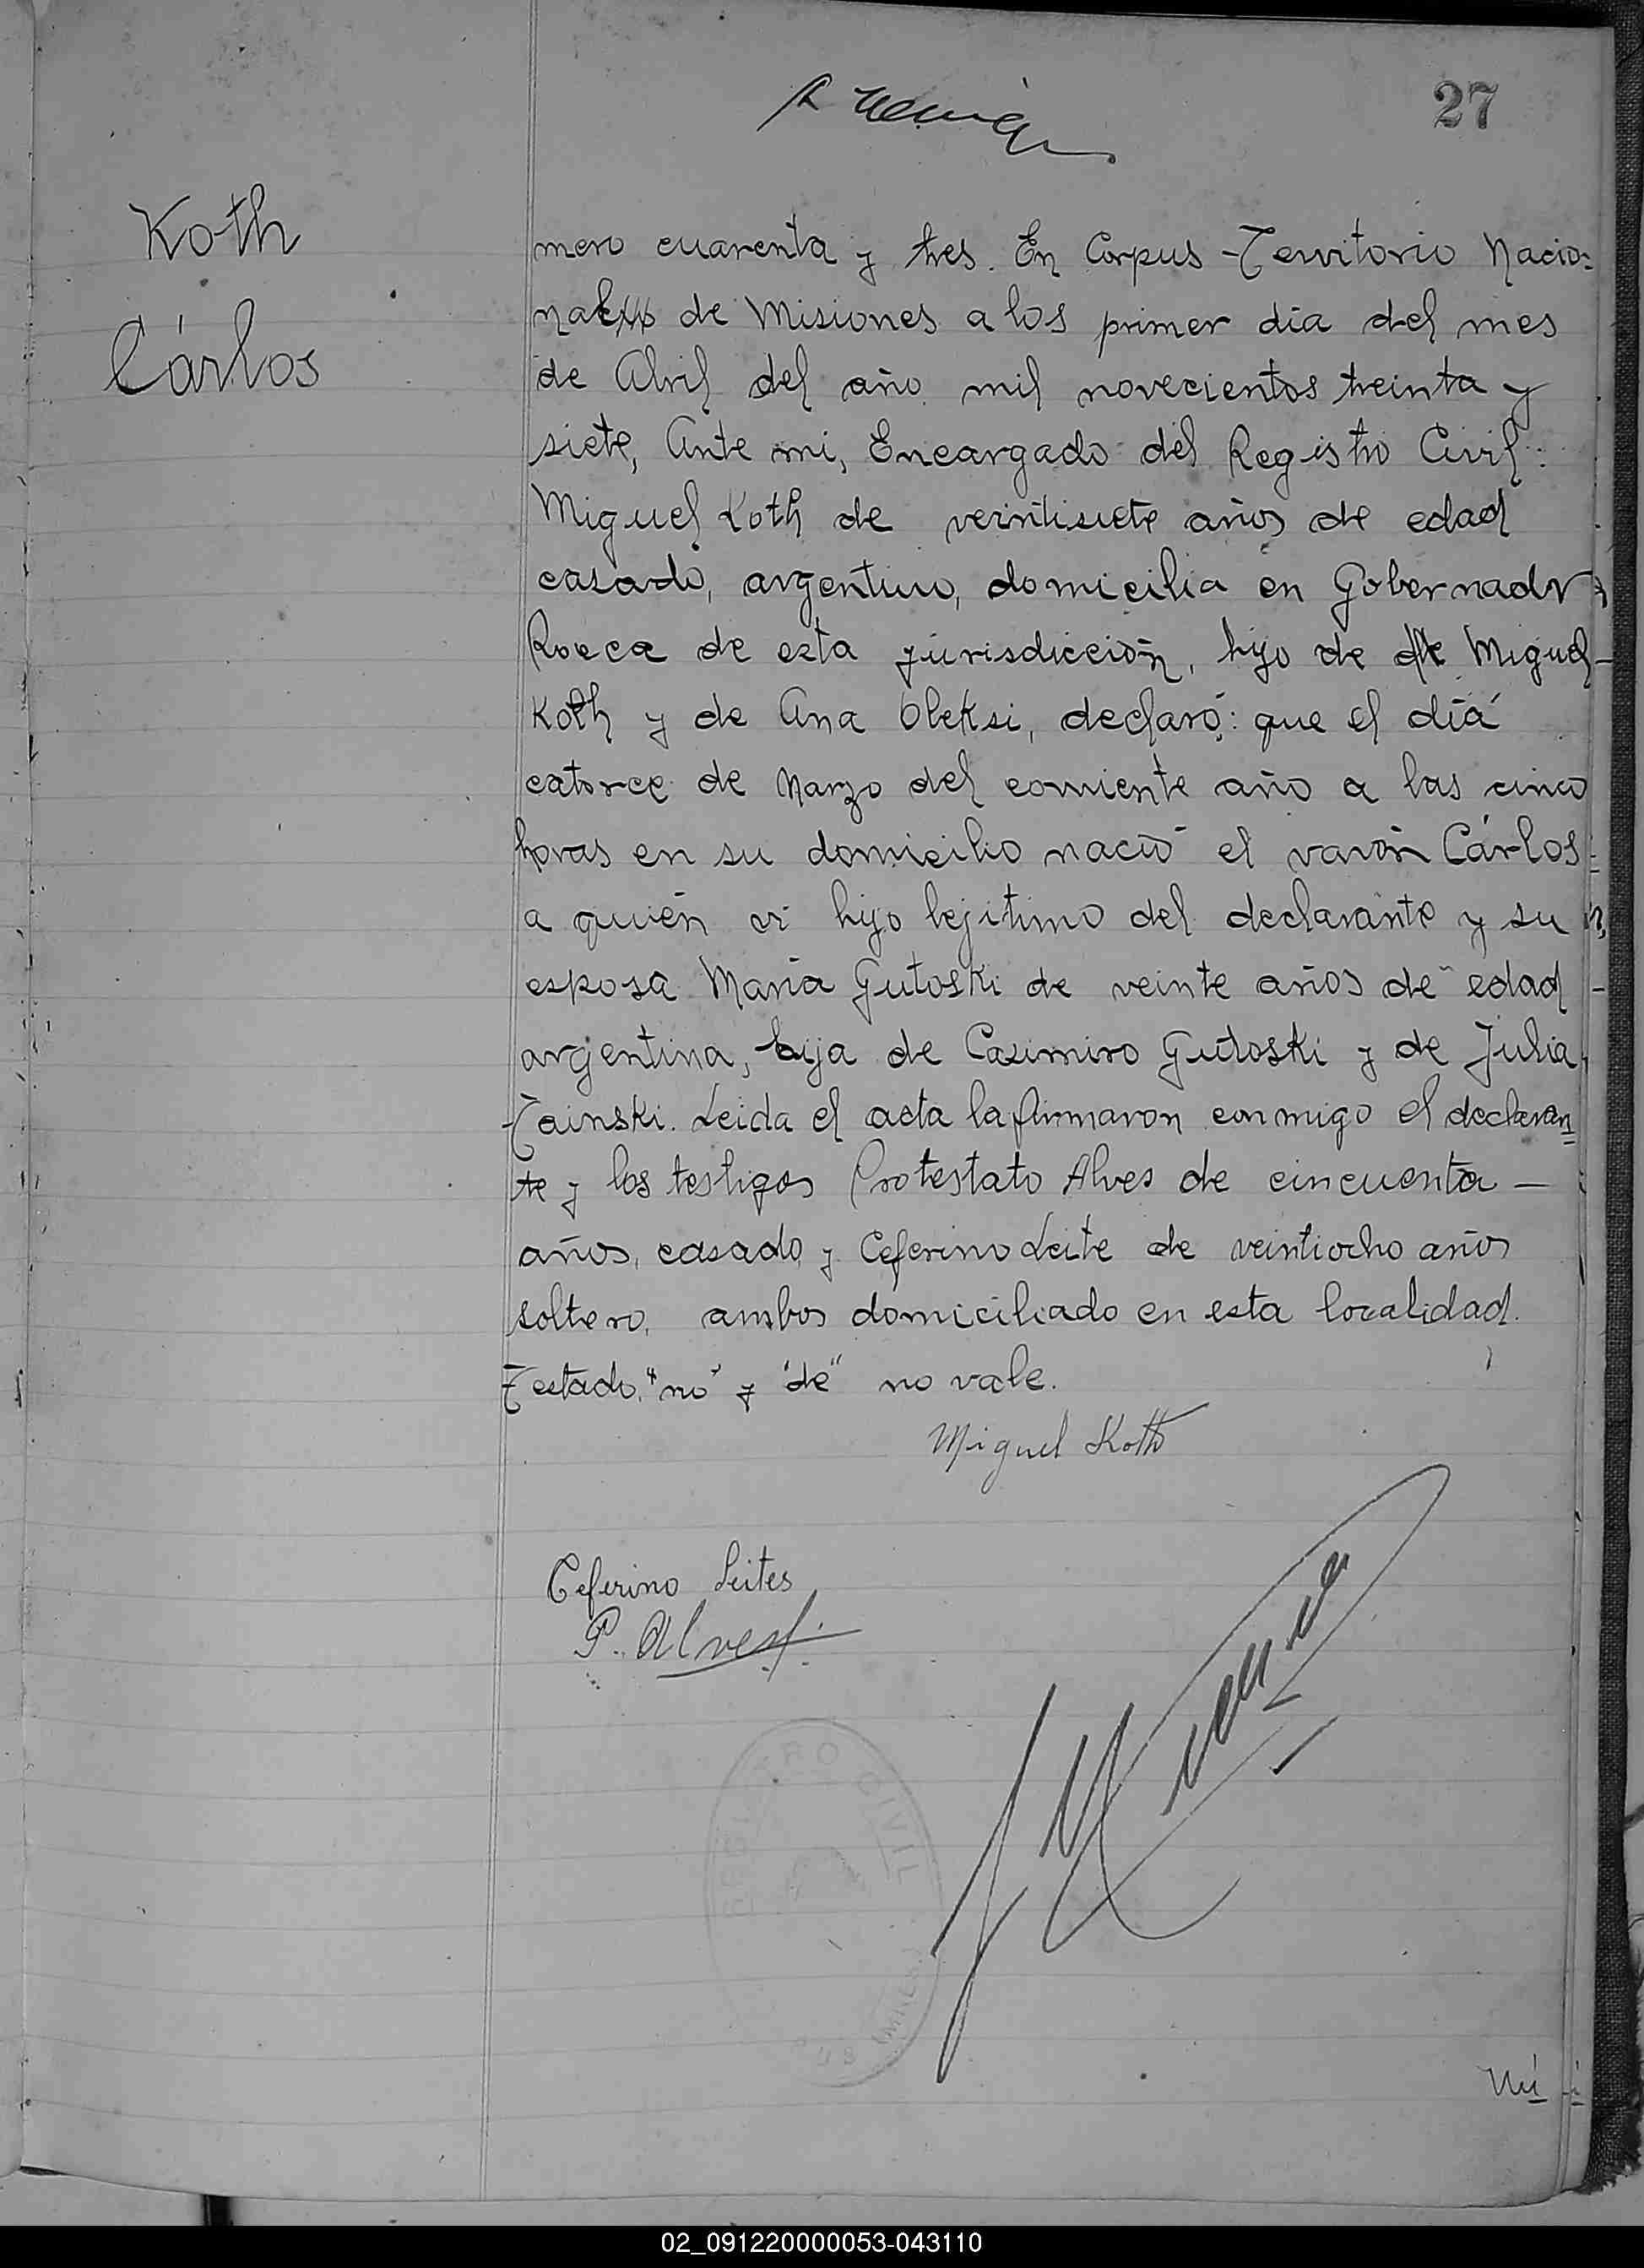 27
Koth
Cárlos
mero cuarenta y tres. En Corpus - Territorio Nacio=
nal de Misiones a los primer dia del mes
de Abril del año mil novecientos treinta y
siete, Ante mi, Encargado del Registro Civil:
Miguel Koth de veintisiete años de edad
casado, argentino, domicilia en Gobernador
Rocca de esta jurisdicción, hijo de de Miguel
Koth y de Ana Oleksi, declaró: que el diá
catorce de Marzo del corriente año a las cinco
horas en su domicilio nació el varón Cárlos
a quién vi hijo lejitimo del declarante y su
esposa María Gutoski de veinte años de edad
argentina, hija de Casimiro Gutoski y de Julia
Tainski. Leida el acta la firmaron conmigo el declaran=
te y los testigos Protestato Alves de cincuenta —
años, casado, y Ceferino Leite de veintiocho años
soltero, ambos domiciliado en esta localidad.
Testado, "no" y "de" no vale.
Miguel Koth
Ceferino Leites
P. Alves
REGISTRO CIVIL
Nú
02_091220000053-043110